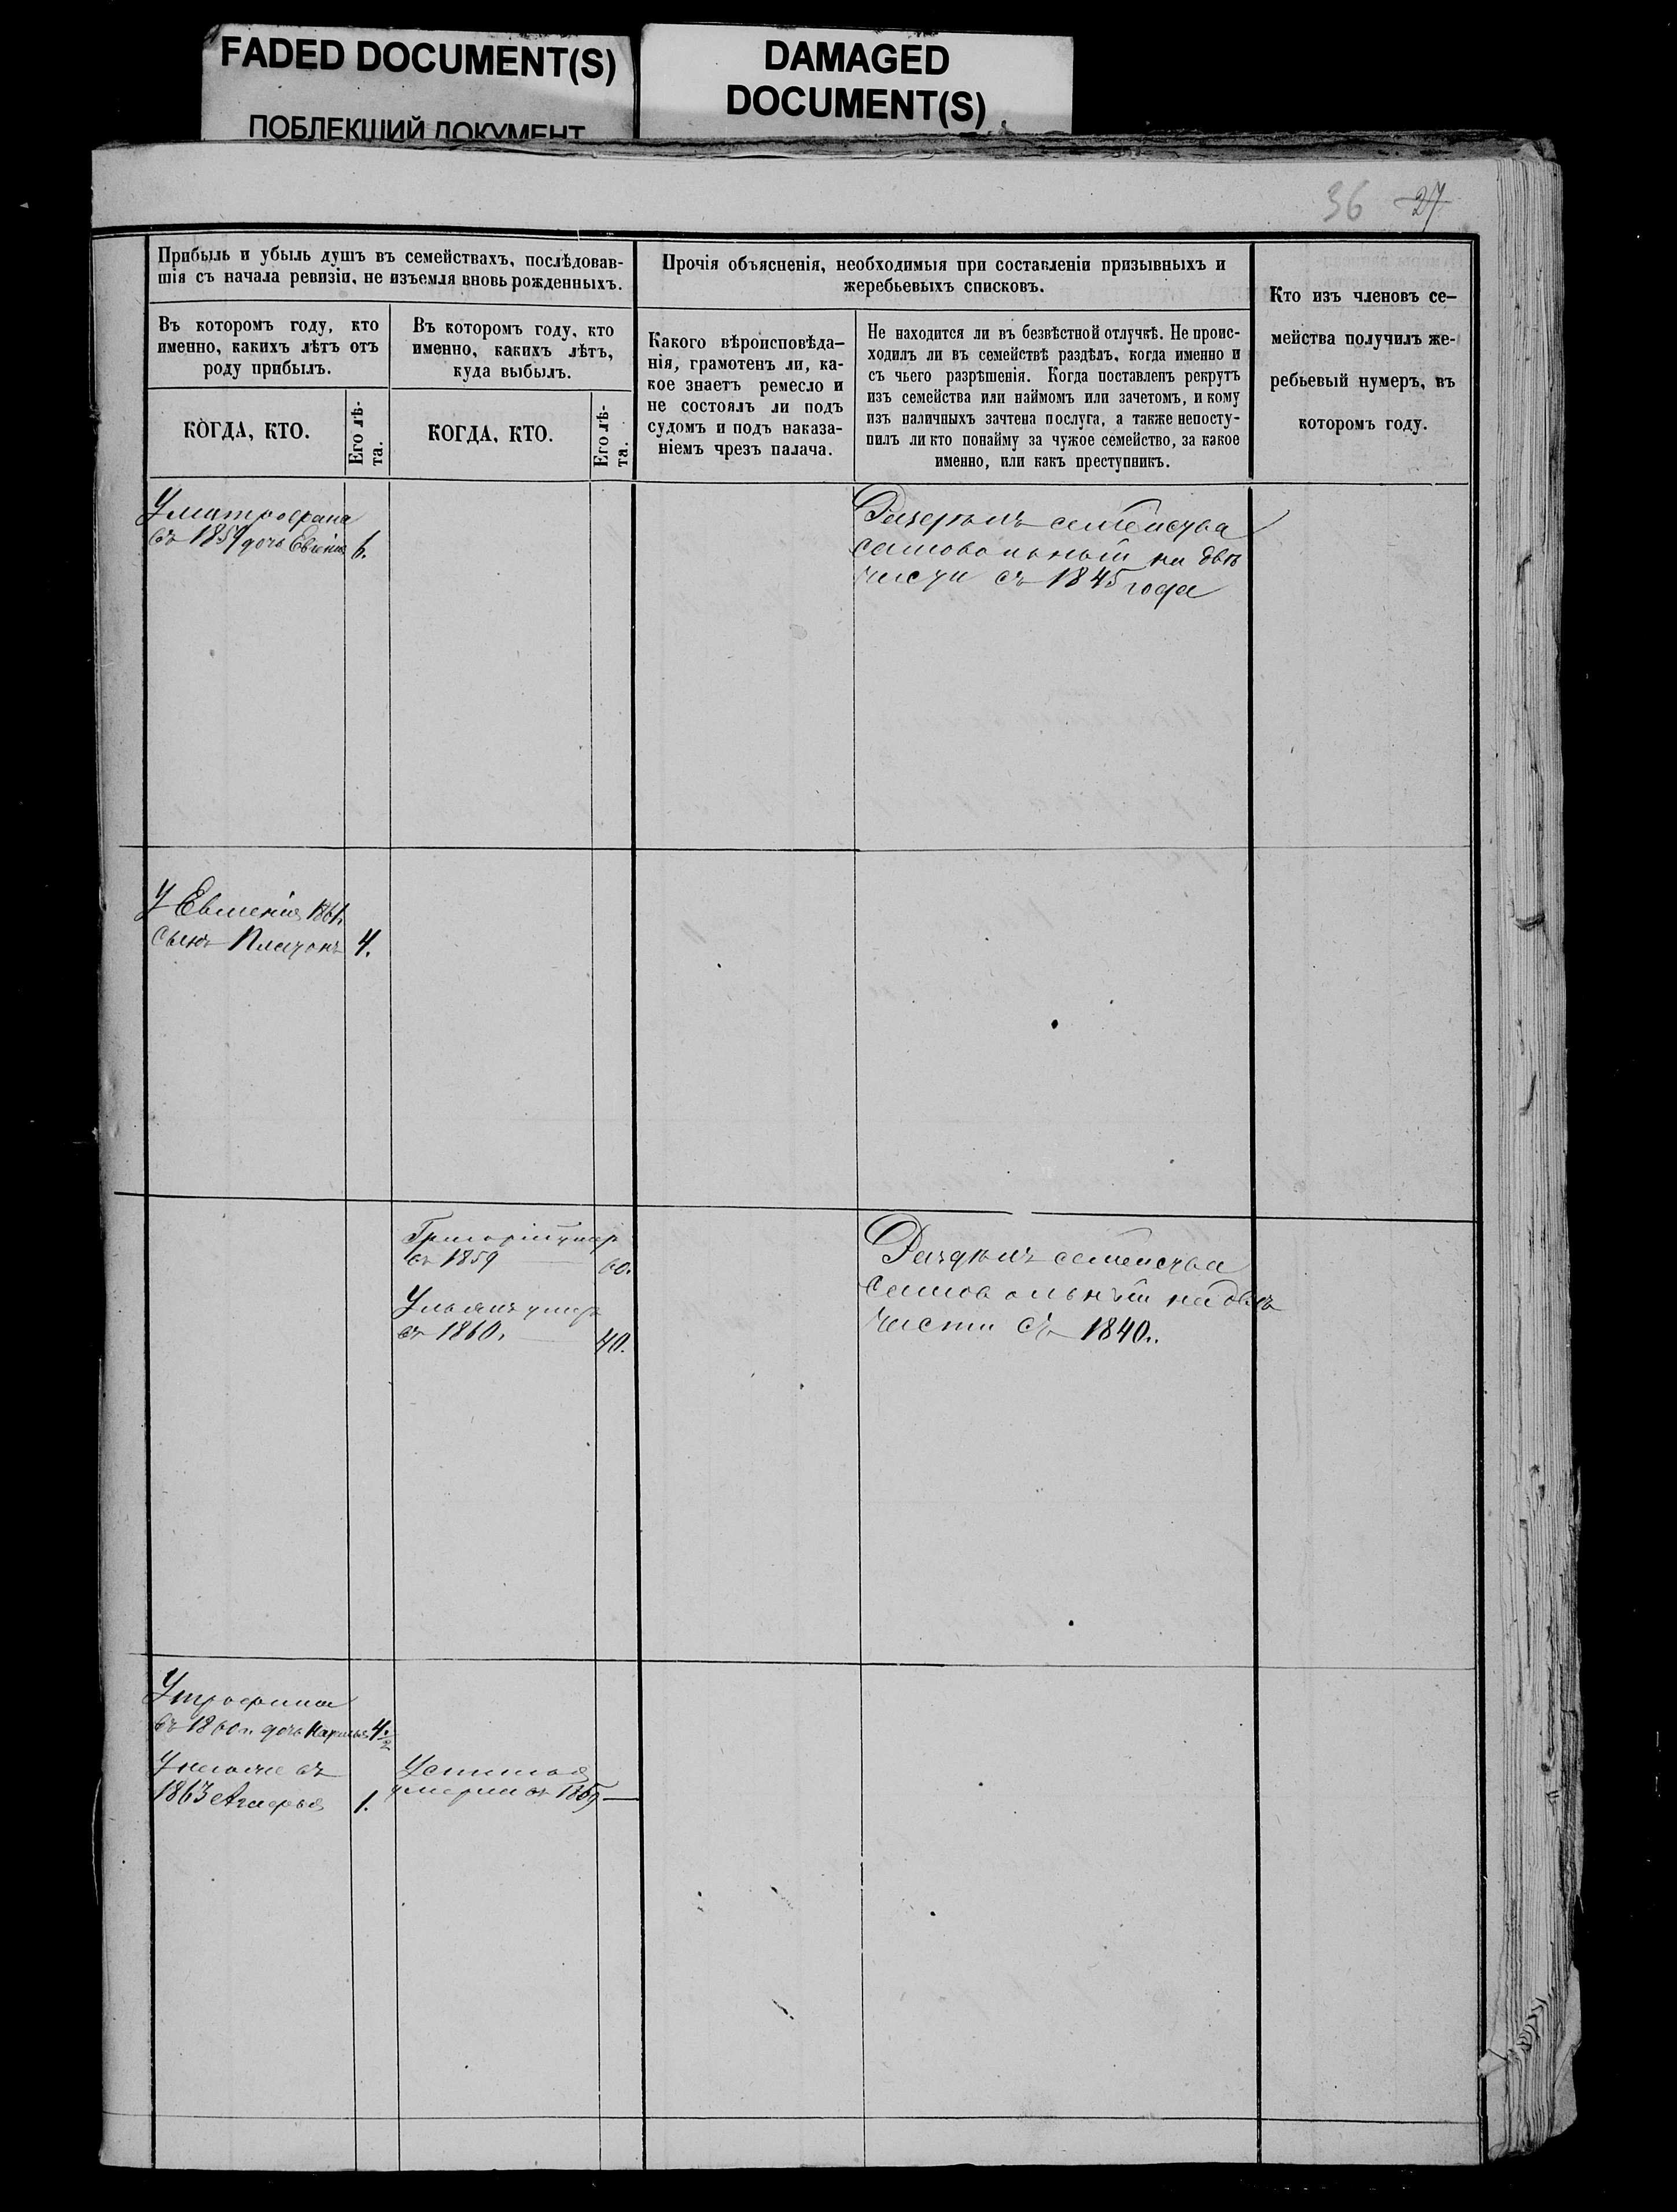 FADED DOCUMENT(S)
ПОБЛЕКШИЙ ДОКУМЕНТ
DAMAGED
DOCUMENT(S)
36 27
Прибыль и убыль душъ въ семействахъ, послѣдовав-
шія съ начала ревизіи, не изъемля вновь рожденныхъ.
Въ которомъ году, кто
именно, какихъ лѣтъ отъ
роду прибылъ.
КОГДА, КТО.
Его лѣ-
та.
Въ которомъ году, кто
именно, какихъ лѣтъ,
куда выбылъ.
КОГДА, КТО.
Его лѣ-
та.
Прочія объясненія, необходимыя при составленіи призывныхъ и
жеребьевыхъ списковъ.
Какого вѣроисповѣда-
нія, грамотенъ ли, ка-
кое знаетъ ремесло и
не состоялъ ли подъ
судомъ и подъ наказа-
ніемъ чрезъ палача.
Не находится ли въ безвѣстной отлучкѣ. Не проис-
ходилъ ли въ семействѣ раздѣлъ, когда именно и
съ чьего разрѣшенія. Когда поставленъ рекрутъ
изъ семейства или наймомъ или зачетомъ, и кому
изъ наличныхъ зачтена послуга, а также непосту-
пилъ ли кто понайму за чужое семейство, за какое
именно, или какъ преступникъ.
Кто изъ членовъ се-
мейства получилъ же-
ребьевый нумеръ, въ
которомъ году.
У митрофана
въ 1857 дочь 6.
Раздѣлъ семейства
самовольный на двѣ
части съ 1845 года
У Евмения 1861.
сынъ Платонъ 4.
Григорій умеръ
въ 1859 60.
Ульянъ умеръ
въ 1860. 40.
Раздѣлъ семейства
самовольный на двѣ
части съ 1840.
У трофима
въ 1860 г. дочь 4.
въ
1863 1.
Устинья
умерла въ